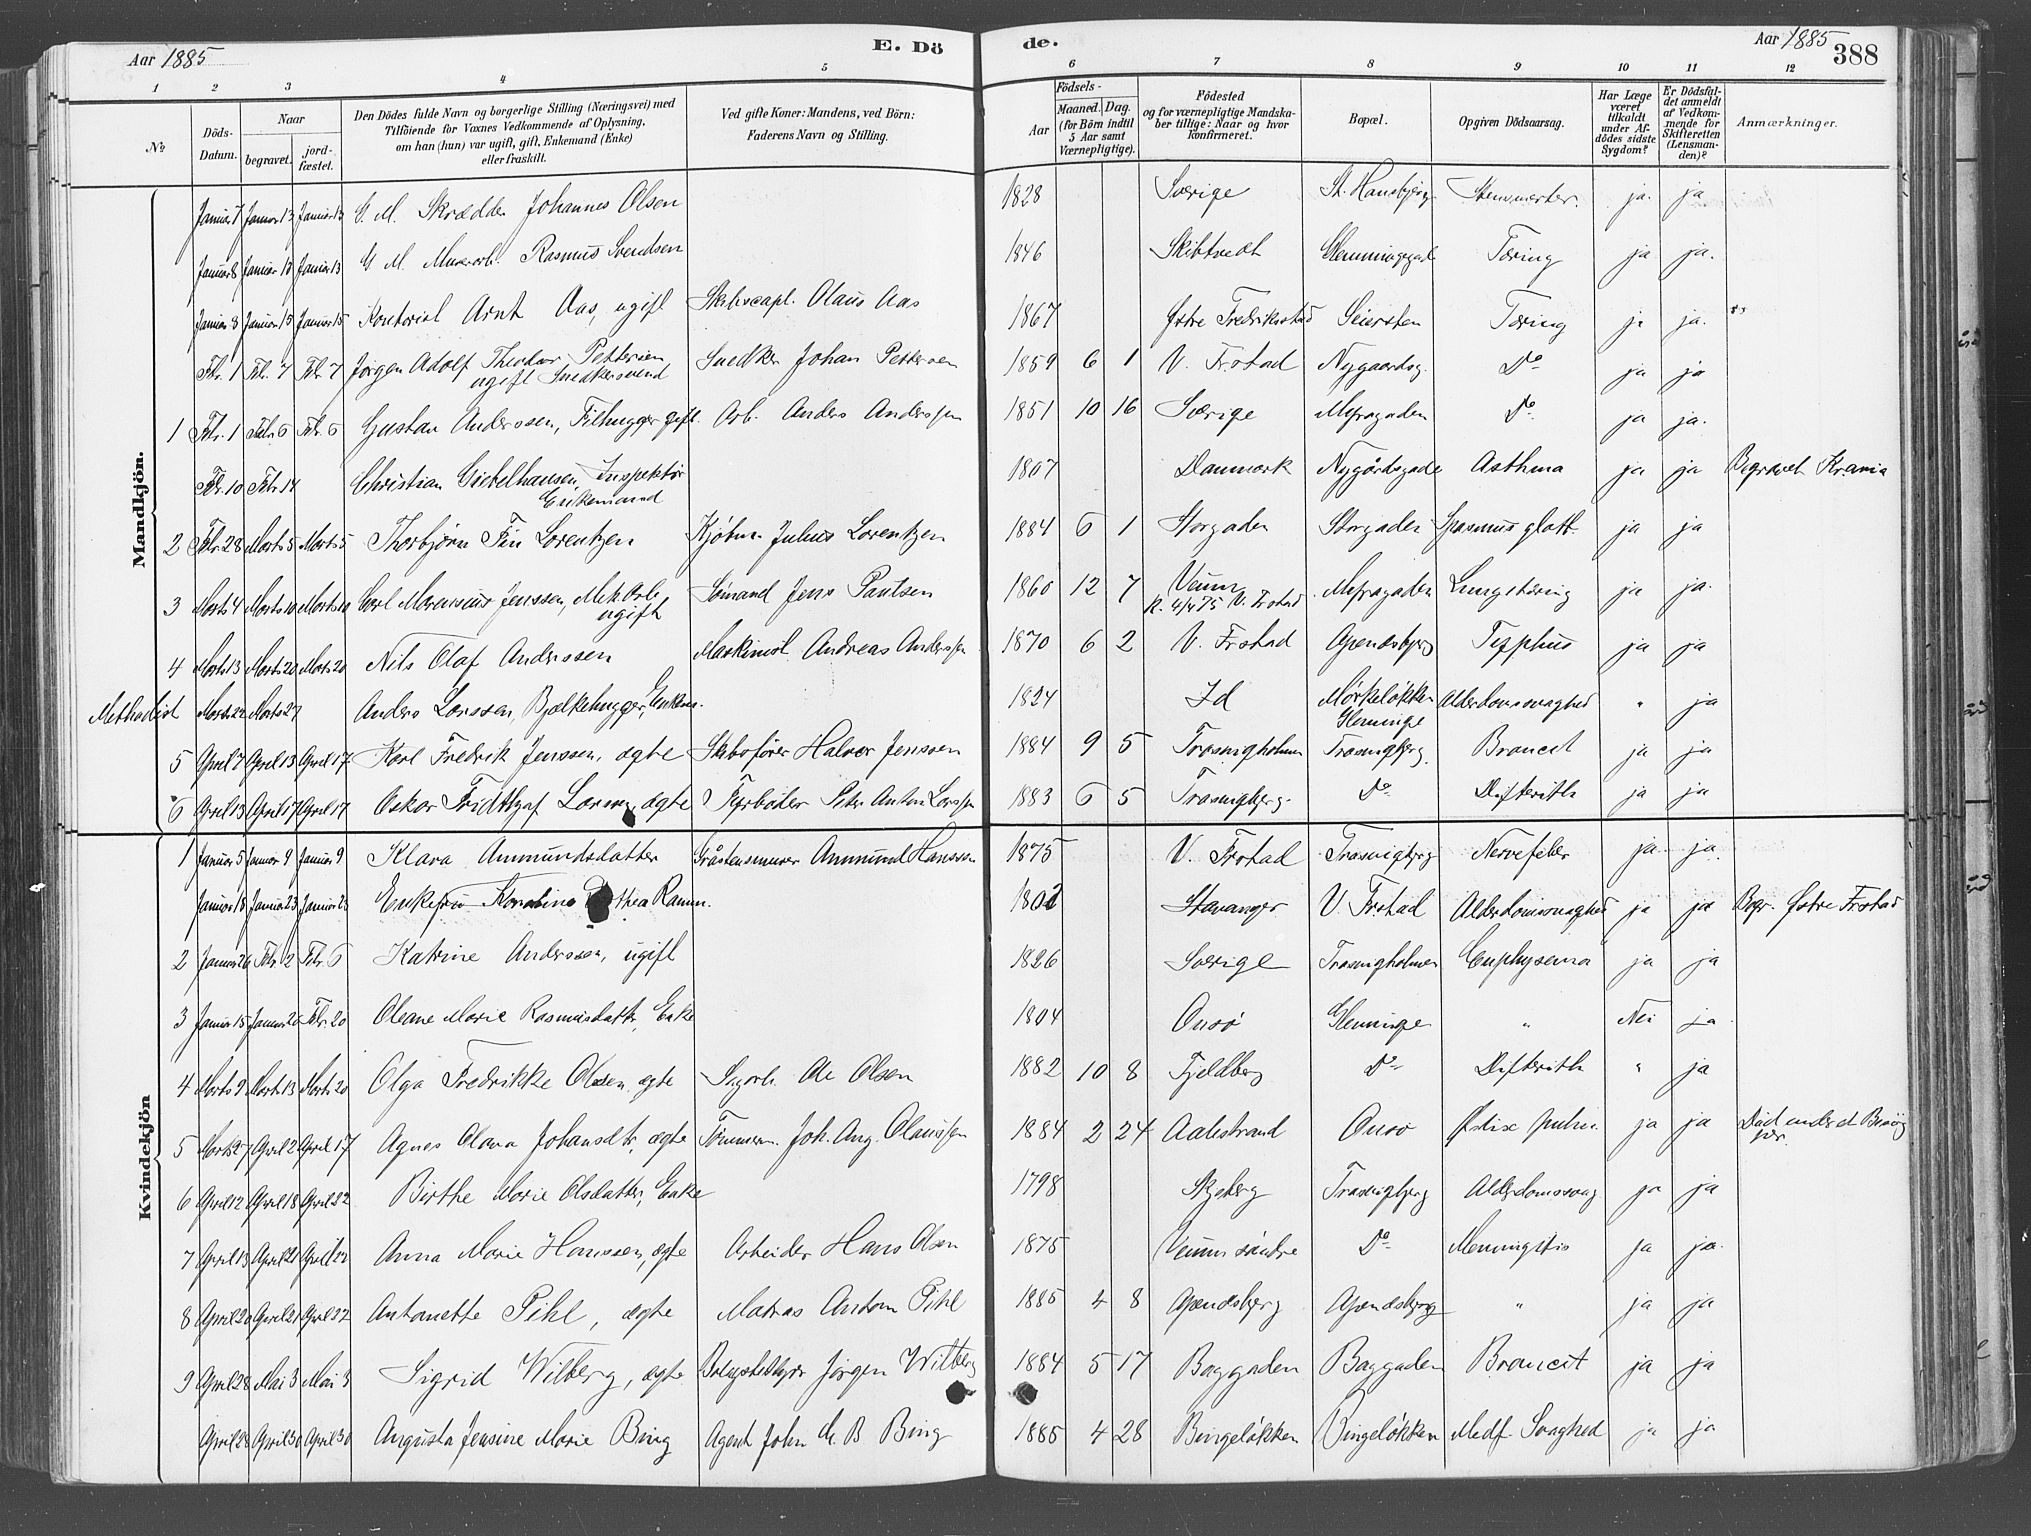 Aar 1885
E. Dö
de.
Aar 1885
388
1 2 3 4 5 6 7 8 9 10 11 12
No
Döds-Datum.
Naar
begravet.
jordfæstet.
Den Dödes fulde Navn og borgerlige Stilling (Næringsvei) med
Tilföiende for Voxnes Vedkommende af Oplysning,
om han (hun) var ugift, gift, Enkemand (Enke)
eller fraskilt.
Ved gifte Koner: Mandens, ved Börn:
Faderens Navn og Stilling.
Födsels-
Aar
Maaned. Dag.
(for Börn indtil
5 Aar samt
Værnepligtige).
Födested
og for værnepligtige Mandskaber tillige: Naar og hvor
konfirmeret.
Bopæl.
Opgiven Dödsaarsag.
Har Læge
været
tilkaldt
under Afdödes sidste
Sygdom?
Er Dödsfaldet anmeldt
af Vedkommende for
Skifteretten
(Lensmanden)?
Anmærkninger.
Mandkjön.
Januar 7 Januar 13 Januar 13 G. M. Skrædder Johannes Olsen 1828 Sverige St. Hansbjerg ja. ja
Januar 8 Januar 13 Januar 13 G M. Murarb. Rasmus Svendsen 1846 Skibtvedt Glemmingegad Tæring ja ja.
Januar 8 Januar 15 Januar 15 Kontorist Arnt Aas, ugift Skibscapt. Olaus Aas 1867 Østre Fredriksstad Seiersten Tæring ja.
Febr. 1 Febr. 7 Febr 7 Jørgen Adolf Theodor Pettersen Snedker Johan Pettersen 1859 6 1 V. Frstad Nygaardsg. Do ja ja
ugift Snedkersvend
1 Febr. 1 Febr 6 Febr. 6 Gustav Anderssen, Filhugger gift. Arb. Anders Anderssen 1851 10 16 Sverige Do. ja ja.
Febr. 10 Febr 14 Christian Giebelhausen, Inspektør 1807 Danmark Nygårdsgade Asthma ja ja Begravet Krania
Enkemand
2 Febr. 28 Marts 5 Marts 5 Thorbjørn Fin Lorentzen Kjøbm. Julius Lorentzen 1884 6 1 Storgaden Storgaden Spasmus glott. ja ja
3 Marts 4 Marts 10 Marts 10 Carl Marensius Jenssen, Mek. Arb. Sømand Jens Paulsen 1860 12 7 Veum Lungetæring ja ja.
ugift K. 4/4 75 V. Frstad
4 Marts 13 Marts 20 Marts 20 Nils Olaf Anderssen Maskinist Andreas Anderssen 1870 6 2 V. Frstad Apenæsbjerg Typhus ja ja
Methodist Marts 22 Marts 27 Anders Larssen, Bjælkehugger, Enkem. 1824 Id Mørkeløkken Alderdomssvaghed " ja
Glemminge
5 April 7 April 13 April 17 Karl Fredrik Jenssen, ægte Skibsfører Halvor Jenssen 1884 9 5 Trosvigholmen Trosvigbjerg. Broncit ja ja
6 April 13 April 17 April 17 Oskar Fridthjof Larsen, ægte Fyrbøter Petr Anton Larssen 1883 6 5 Trosvigbjerg Do Difterith ja ja
Kvindekjön
1 Januar 5 Januar 9 Januar 9 Klara Ammundsdatter Gråstensmurer Ammund Hanssen 1875 V. Frstad Trosvigbjerg Nervefeber ja ja.
Januar 18 Januar 23 Januar 23 Enkefru 1802 Stavanger V. Frstad Alderdomssvaghed ja ja Begr. Østre Frstad
2 Januar 26 Febr. 2 Febr. 6 Katrine Anderssen, ugift 1826 Sverige Trosvigholmen Emphysema ja ja
3 Januar 15 Januar 20 Febr. 20 Oleane Marie Rasmusdatter, Enke 1804 Onsø Glemminge " Nei ja
4 Marts 9 Marts 13 Marts 20 Olga Fredrikke Olsen, ægte Ole Olsen 1882 10 8 Fjeldberg Do Difterith " ja
5 Marts 27 April 2 April 17 Agnes Olava Johansdtr, ægte Tømmerm. Joh. Aug. Olaussen 1884 2 24 Aalestrand Onsø ja ja Død under et Besøg
her.
6 April 12 April 18 April 22 Birthe Marie Olsdatter, Enke 1798 Skjeberg Trosvigbjerg Alderdomssvag ja ja
7 April 13 April 21 April 22 Anna Marie Hanssen, ægte Arbeider Hans Olsen 1875 Veum søndre Do Menningitis ja ja.
8 April 20 April 21 April 22 Antonette Pihl, ægte Matros Anton Pihl 1885 4 8 Apenæsbjerg Apenæsbjerg " ja ja
9 April 28 Mai 3 Mai 3 Sigrid Wilberg, ægte Jørgen Wilberg 1884 5 17 Baggaden Baggaden Broncit ja ja
April 28 April 30 April 30 Augusta Jensine Marie Bing Agent John M. B Bing 1885 4 28 Bingeløkken Bingeløkken Medf. Svaghed ja ja